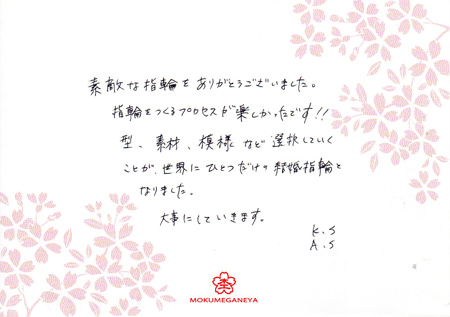 素敵な指輪をありがとうございました。
指輪をつくるプロセスが楽しかったです!!
型、素材、模様など選択していく
ことが、世界にひとつだけの結婚指輪と
なりました。
大事にしていきます。
K.S
A.S
MOKUMEGANEYA